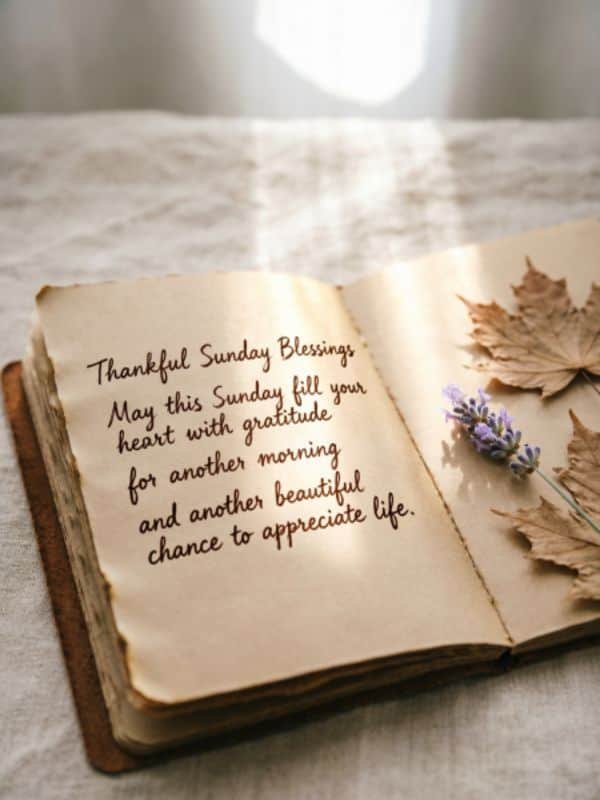 Thankful Sunday Blessings
May this Sunday fill your
heart with gratitude
for another morning
and another beautiful
chance to appreciate life.